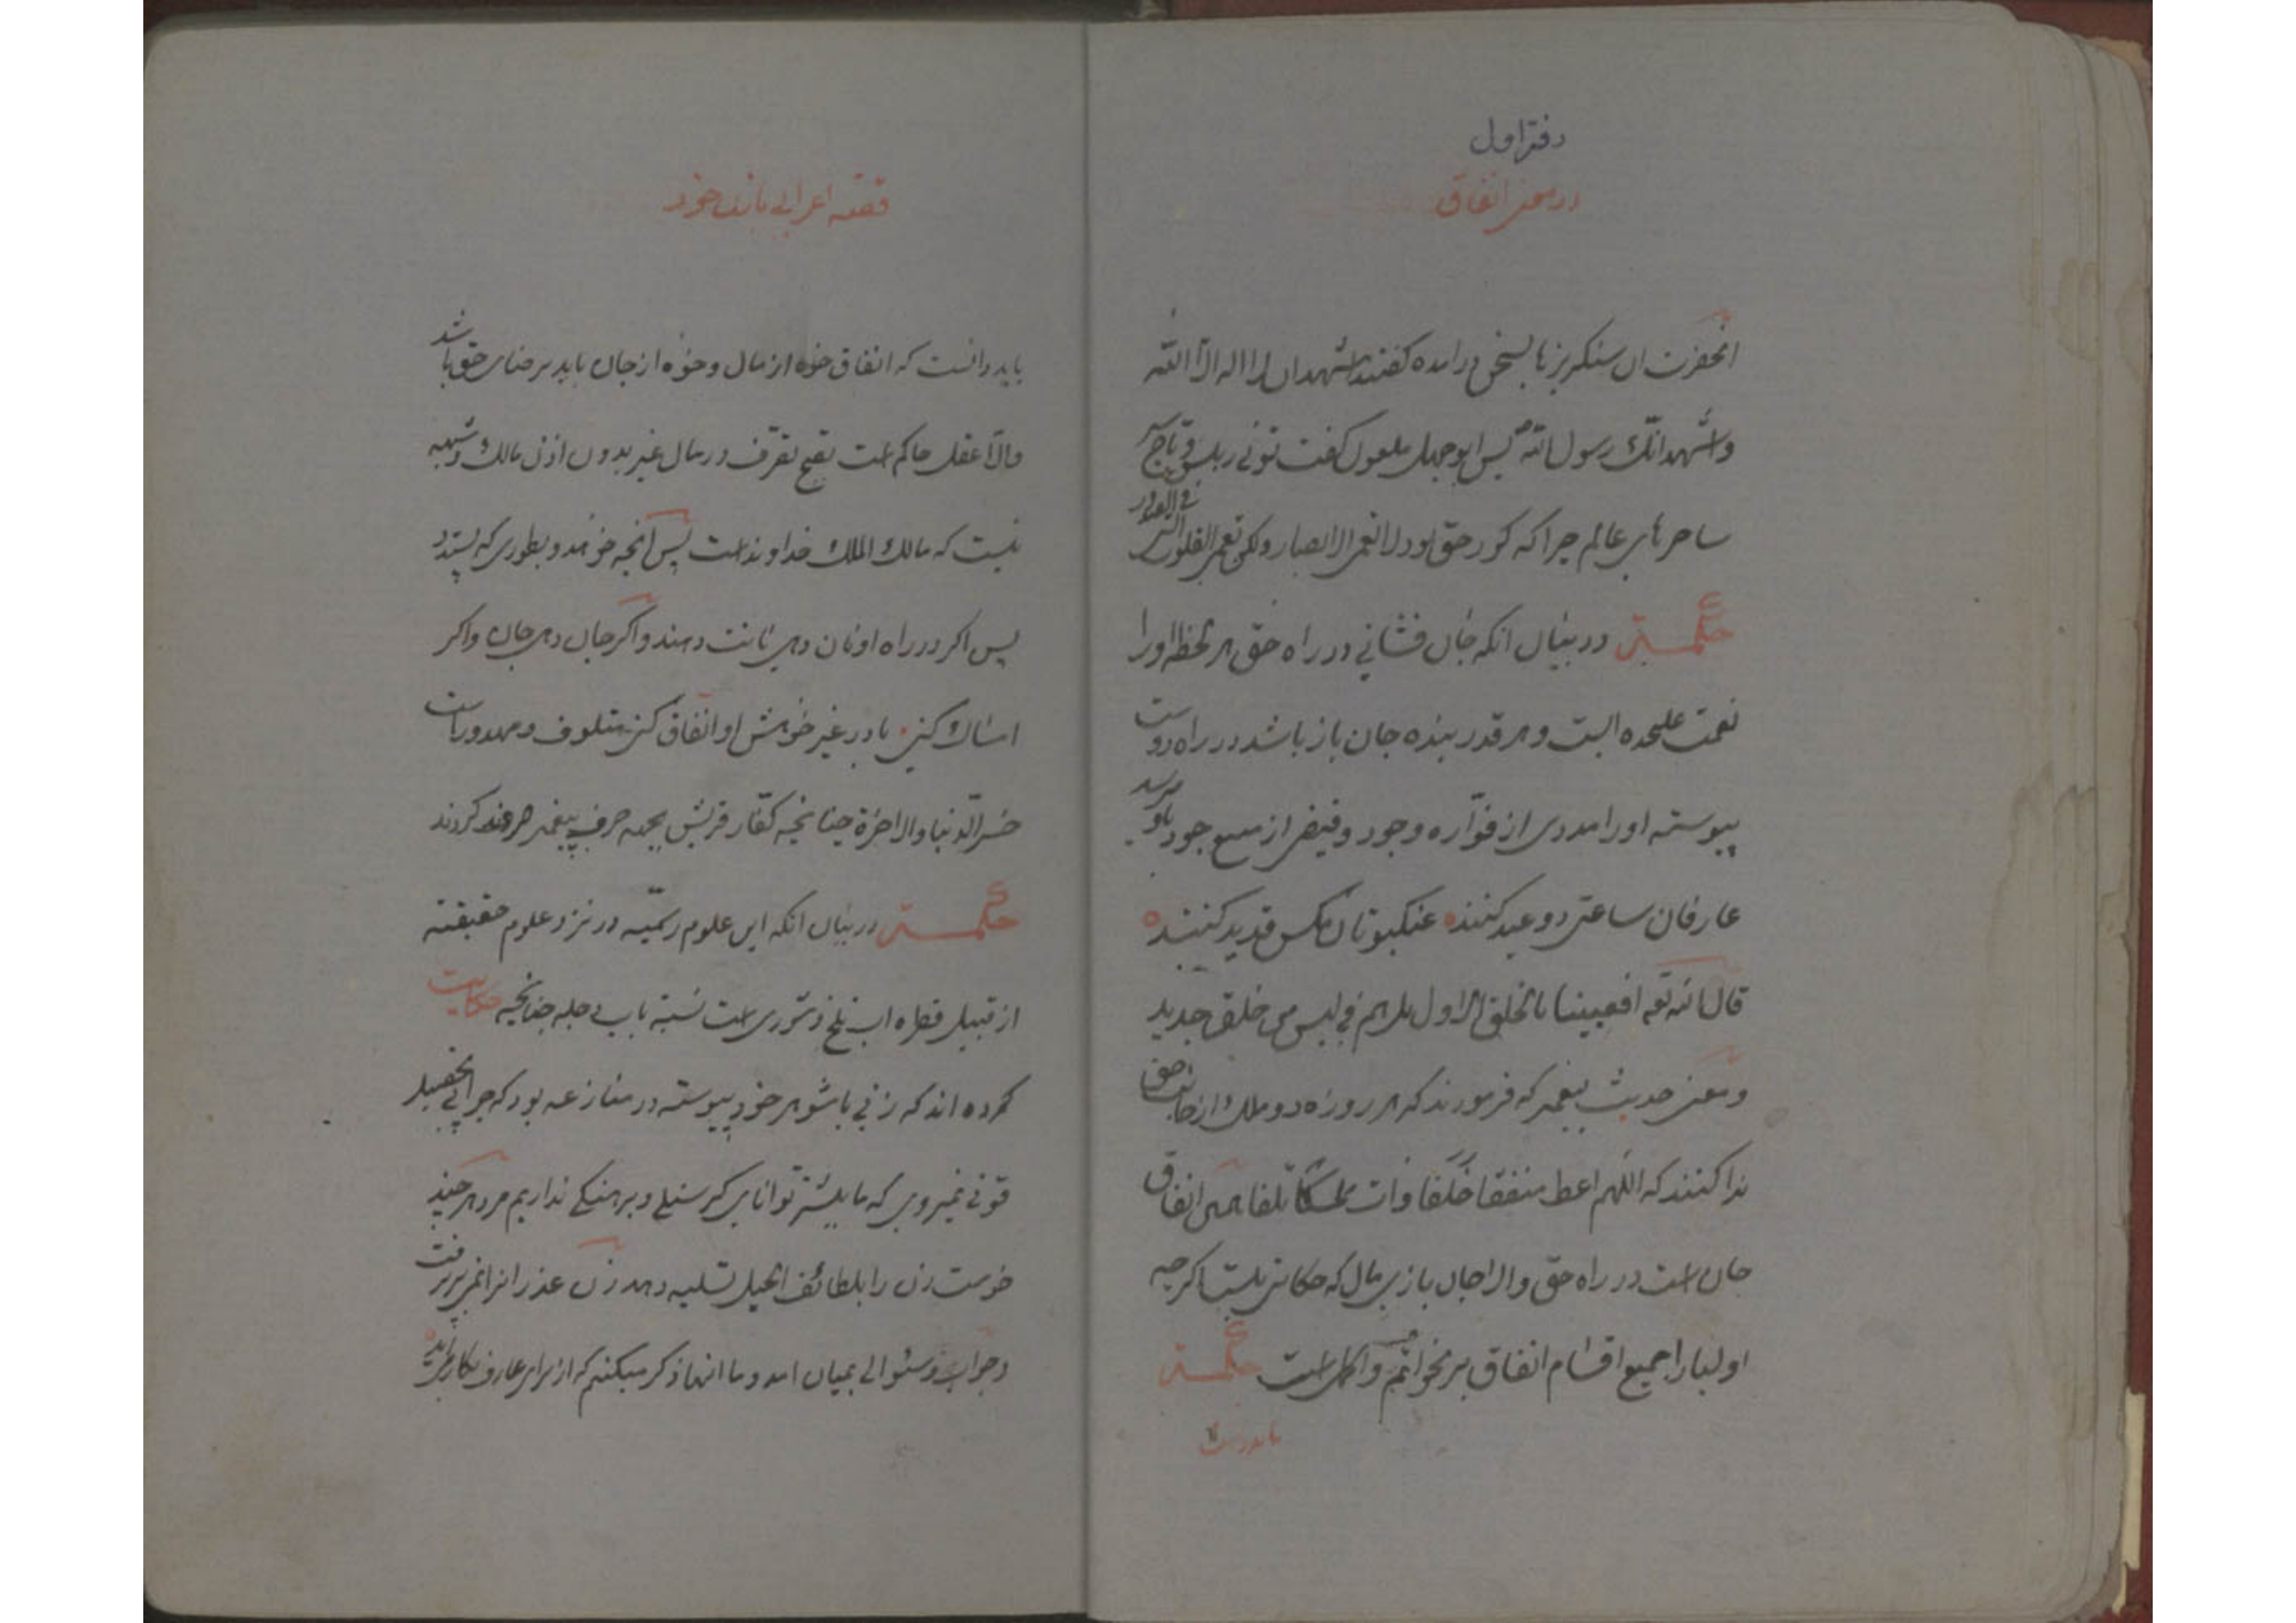 دفتر اول
در معنی انفاق
انحضرت ان سنکریزها بسخن درامده کفتند اشهد ان لا اله الا الله
و اشهد انک رسول الله ص پس ابوجهل ملعون کفت توئی رئیس و تاج
ساحرهای عالم چرا که کور حق بود لا تعمی الابصار ولکن تعمی القلوب التی فی الصدور
حکمت در بیان انکه جان فشانی در راه حق هر لحظه او را
نعمت علیحده ایست و هر قدر بنده جان باز باشد در راه دوست
پیوسته او را مددی از فواره وجود و فیض از منبع جود باو میرسد
عارفان ساعتی دو عید کنند ه عنکبوتان مکس قدید کنند ه
قال الله تعه افعیینا بالخلق الاول بل هم فی لبس من خلق جدید
و معنی حدیث پیغمبر که فرمودند که هر روزه دو ملک از جانب حق
ندا کنند که اللهم اعط منفقا خلفا وات ممسکا تلفا همین انفاق
جان است در راه حق والا جان بازی مال که حکایتی نیست اکرچه
اولیا را جمیع اقسام انفاق بر نحو اتم و اکمل است حکمت
باید دانست
قصه اعرابی با زن خود
باید دانست که انفاق خواه از مال و خواه از جان باید برضای حق باشد
والا عقل حاکم است بقبح تصرف در مال غیر بدون اذن مالک و شبهه
نیست که مالک الملک خداوند است پس انچه خواهد و بطوری که پسندد
پس اکر در راه او نان دهی نانت دهند و اکر جان دهی جان و اکر
امساک کنی یا در غیر خواهش او انفاق کنی متلوف و مهدور است
خسر الدنیا والاخرة چنانچه کفار قریش بجهه حرب پیغمبر صرف کردند
حکمت در بیان انکه این علوم رسمیه در نزد علوم حقیقته
از قبیل قطره اب تلخ و شوری است نسبته باب دجله چنانچه حکایت
کرده اند که زنی با شوهر خود پیوسته در منازعه بود که چرا پی تحصیل
قوتی نمیروی که ما بیشتر توانایی کرسنکی و برهنکی نداریم مرد هر چند
خواست زن را بلطائف الحیل تسلیه دهد زن عذر انرا نمی پذیرفت
و جواب و سئوالی بمیان امد و ما انها ذکر میکنیم که از برای عارف بکار می اید